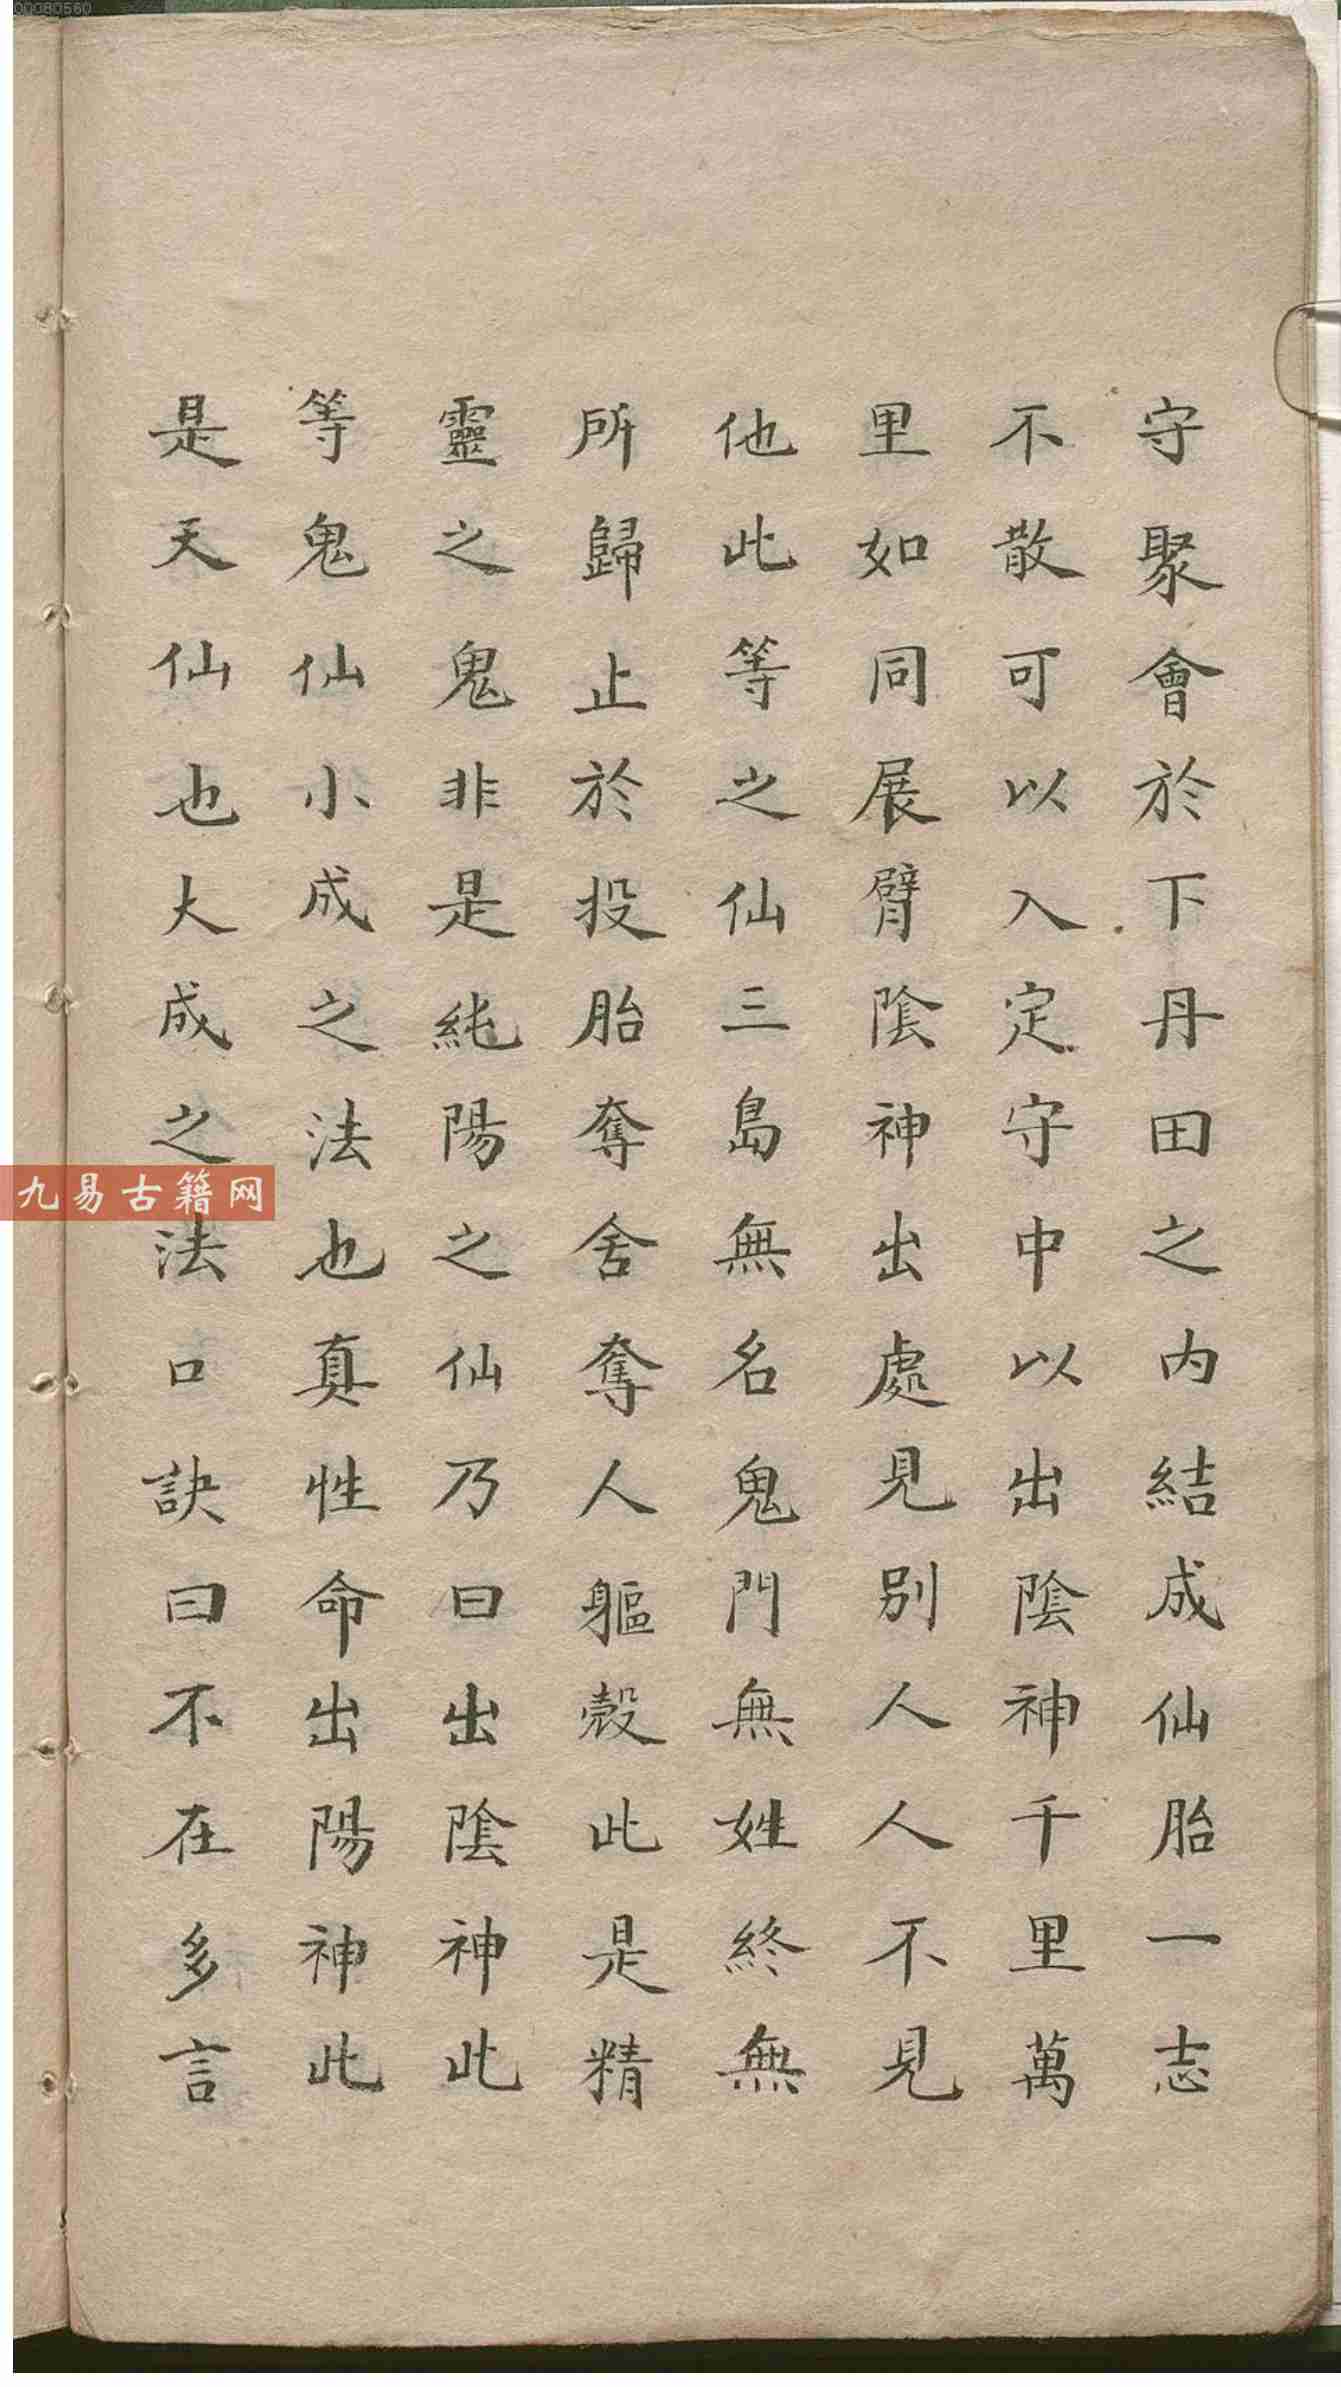 守聚會於下丹田之内結成仙胎一志
不散可以入定守中以出陰神千里萬
里如同展臂陰神出處見別人人不見
他此等之仙三島無名鬼門無姓終無
所歸止於投胎奪舍奪人軀殼此是精
靈之鬼非是純陽之仙乃曰出陰神此
等鬼仙小成之法也真性命出陽神此
是天仙也大成之法口訣曰不在多言
九易古籍网
00080560